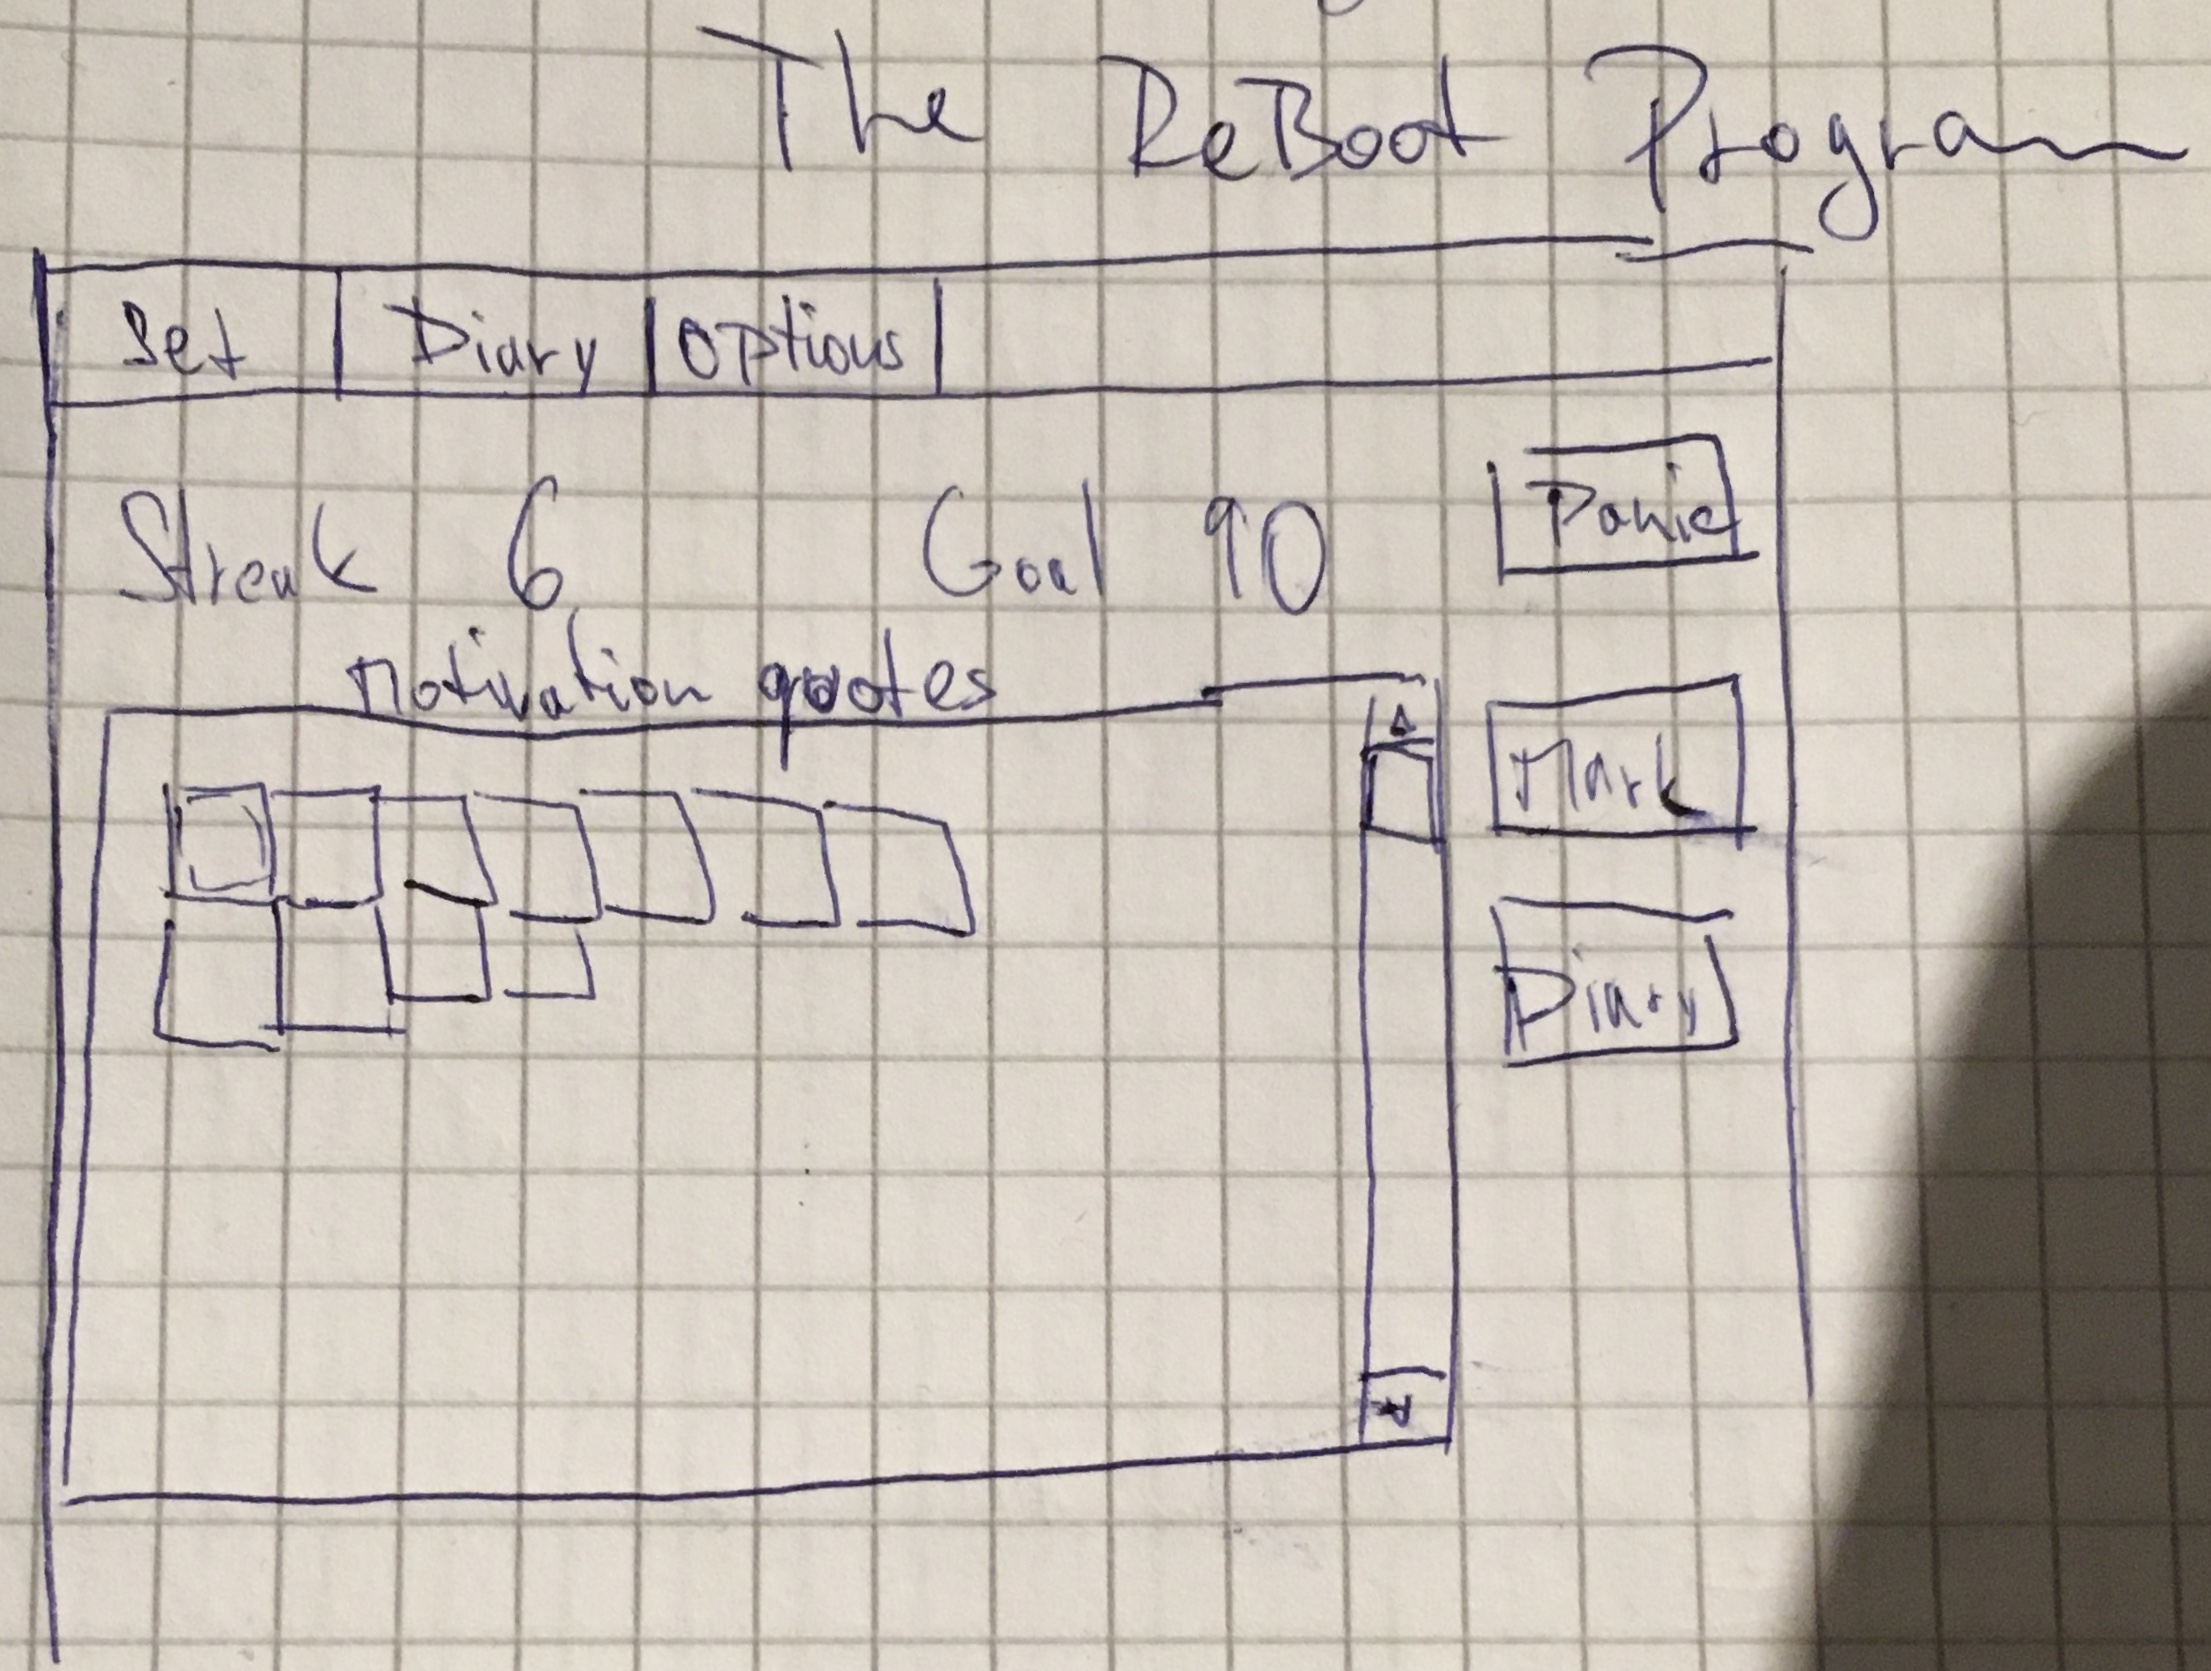 The ReBoot Program
Set Diary Options
Streak 6 Goal 90 Panic
motivation quotes
Mark
Diary